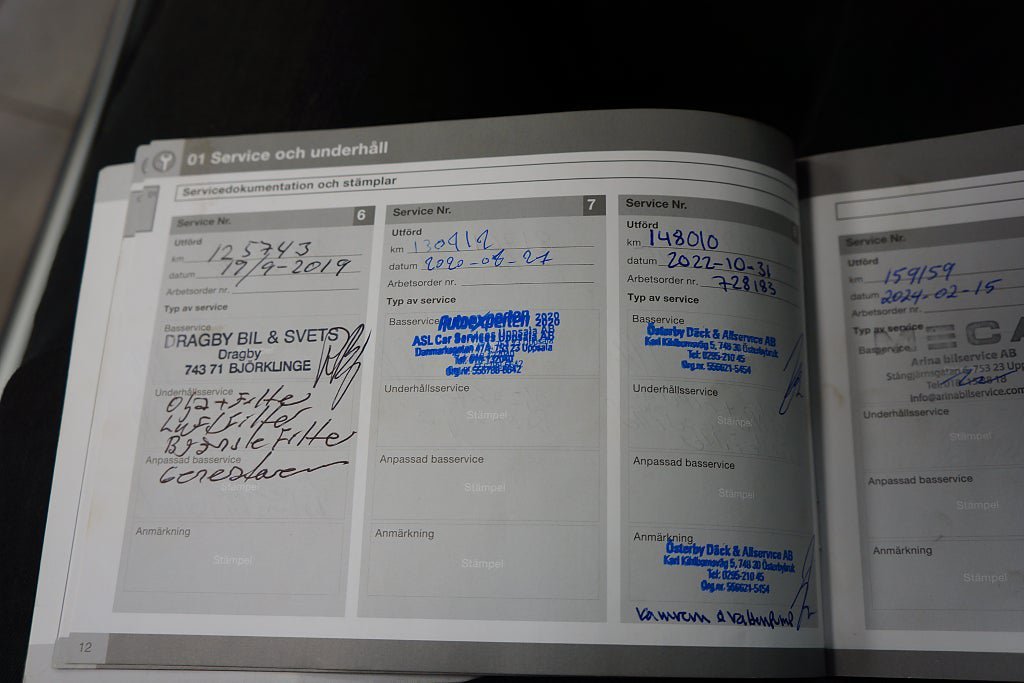 01 Service och underhåll
Servicedokumentation och stämplar
Service Nr. 6
Utförd
km 125743
datum 19/9-2019
Arbetsorder nr.
Typ av service
Basservice
DRAGBY BIL & SVETS
Dragby
743 71 BJÖRKLINGE
Underhållsservice
Olja + Filter
Luftfilter
Bränslefilter
Anpassad basservice
Stämpel
Anmärkning
Stämpel
Service Nr. 7
Utförd
km
datum
Arbetsorder nr.
Typ av service
Basservice
Autoexperten 2020
ASL Car Services Uppsala AB
Danmarksgatan 47A, 753 23 Uppsala
Underhållsservice
Stämpel
Anpassad basservice
Stämpel
Anmärkning
Stämpel
Service Nr.
Utförd
km 148010
datum 2022-10-31
Arbetsorder nr. 728183
Typ av service
Basservice
Österby Däck & Allservice AB
Karl Kihlbomsväg 5, 748 30 Österbybruk
Tel: 0295-210 45
Org.nr. 556621-5454
Underhållsservice
Stämpel
Anpassad basservice
Stämpel
Anmärkning
Österby Däck & Allservice AB
Karl Kihlbomsväg 5, 748 30 Österbybruk
Tel: 0295-210 45
Org.nr. 556621-5454
Kamrem & vattenpump
Service Nr.
Utförd
km 159159
datum 2024-02-15
Arbetsorder nr.
Typ av service
Basservice
MECA
Arina bilservice AB
Stångjärnsgatan 753 23 Upp
info@arinabilservice.com
Underhållsservice
Stämpel
Anpassad basservice
Stämpel
Anmärkning
Stämpel
12